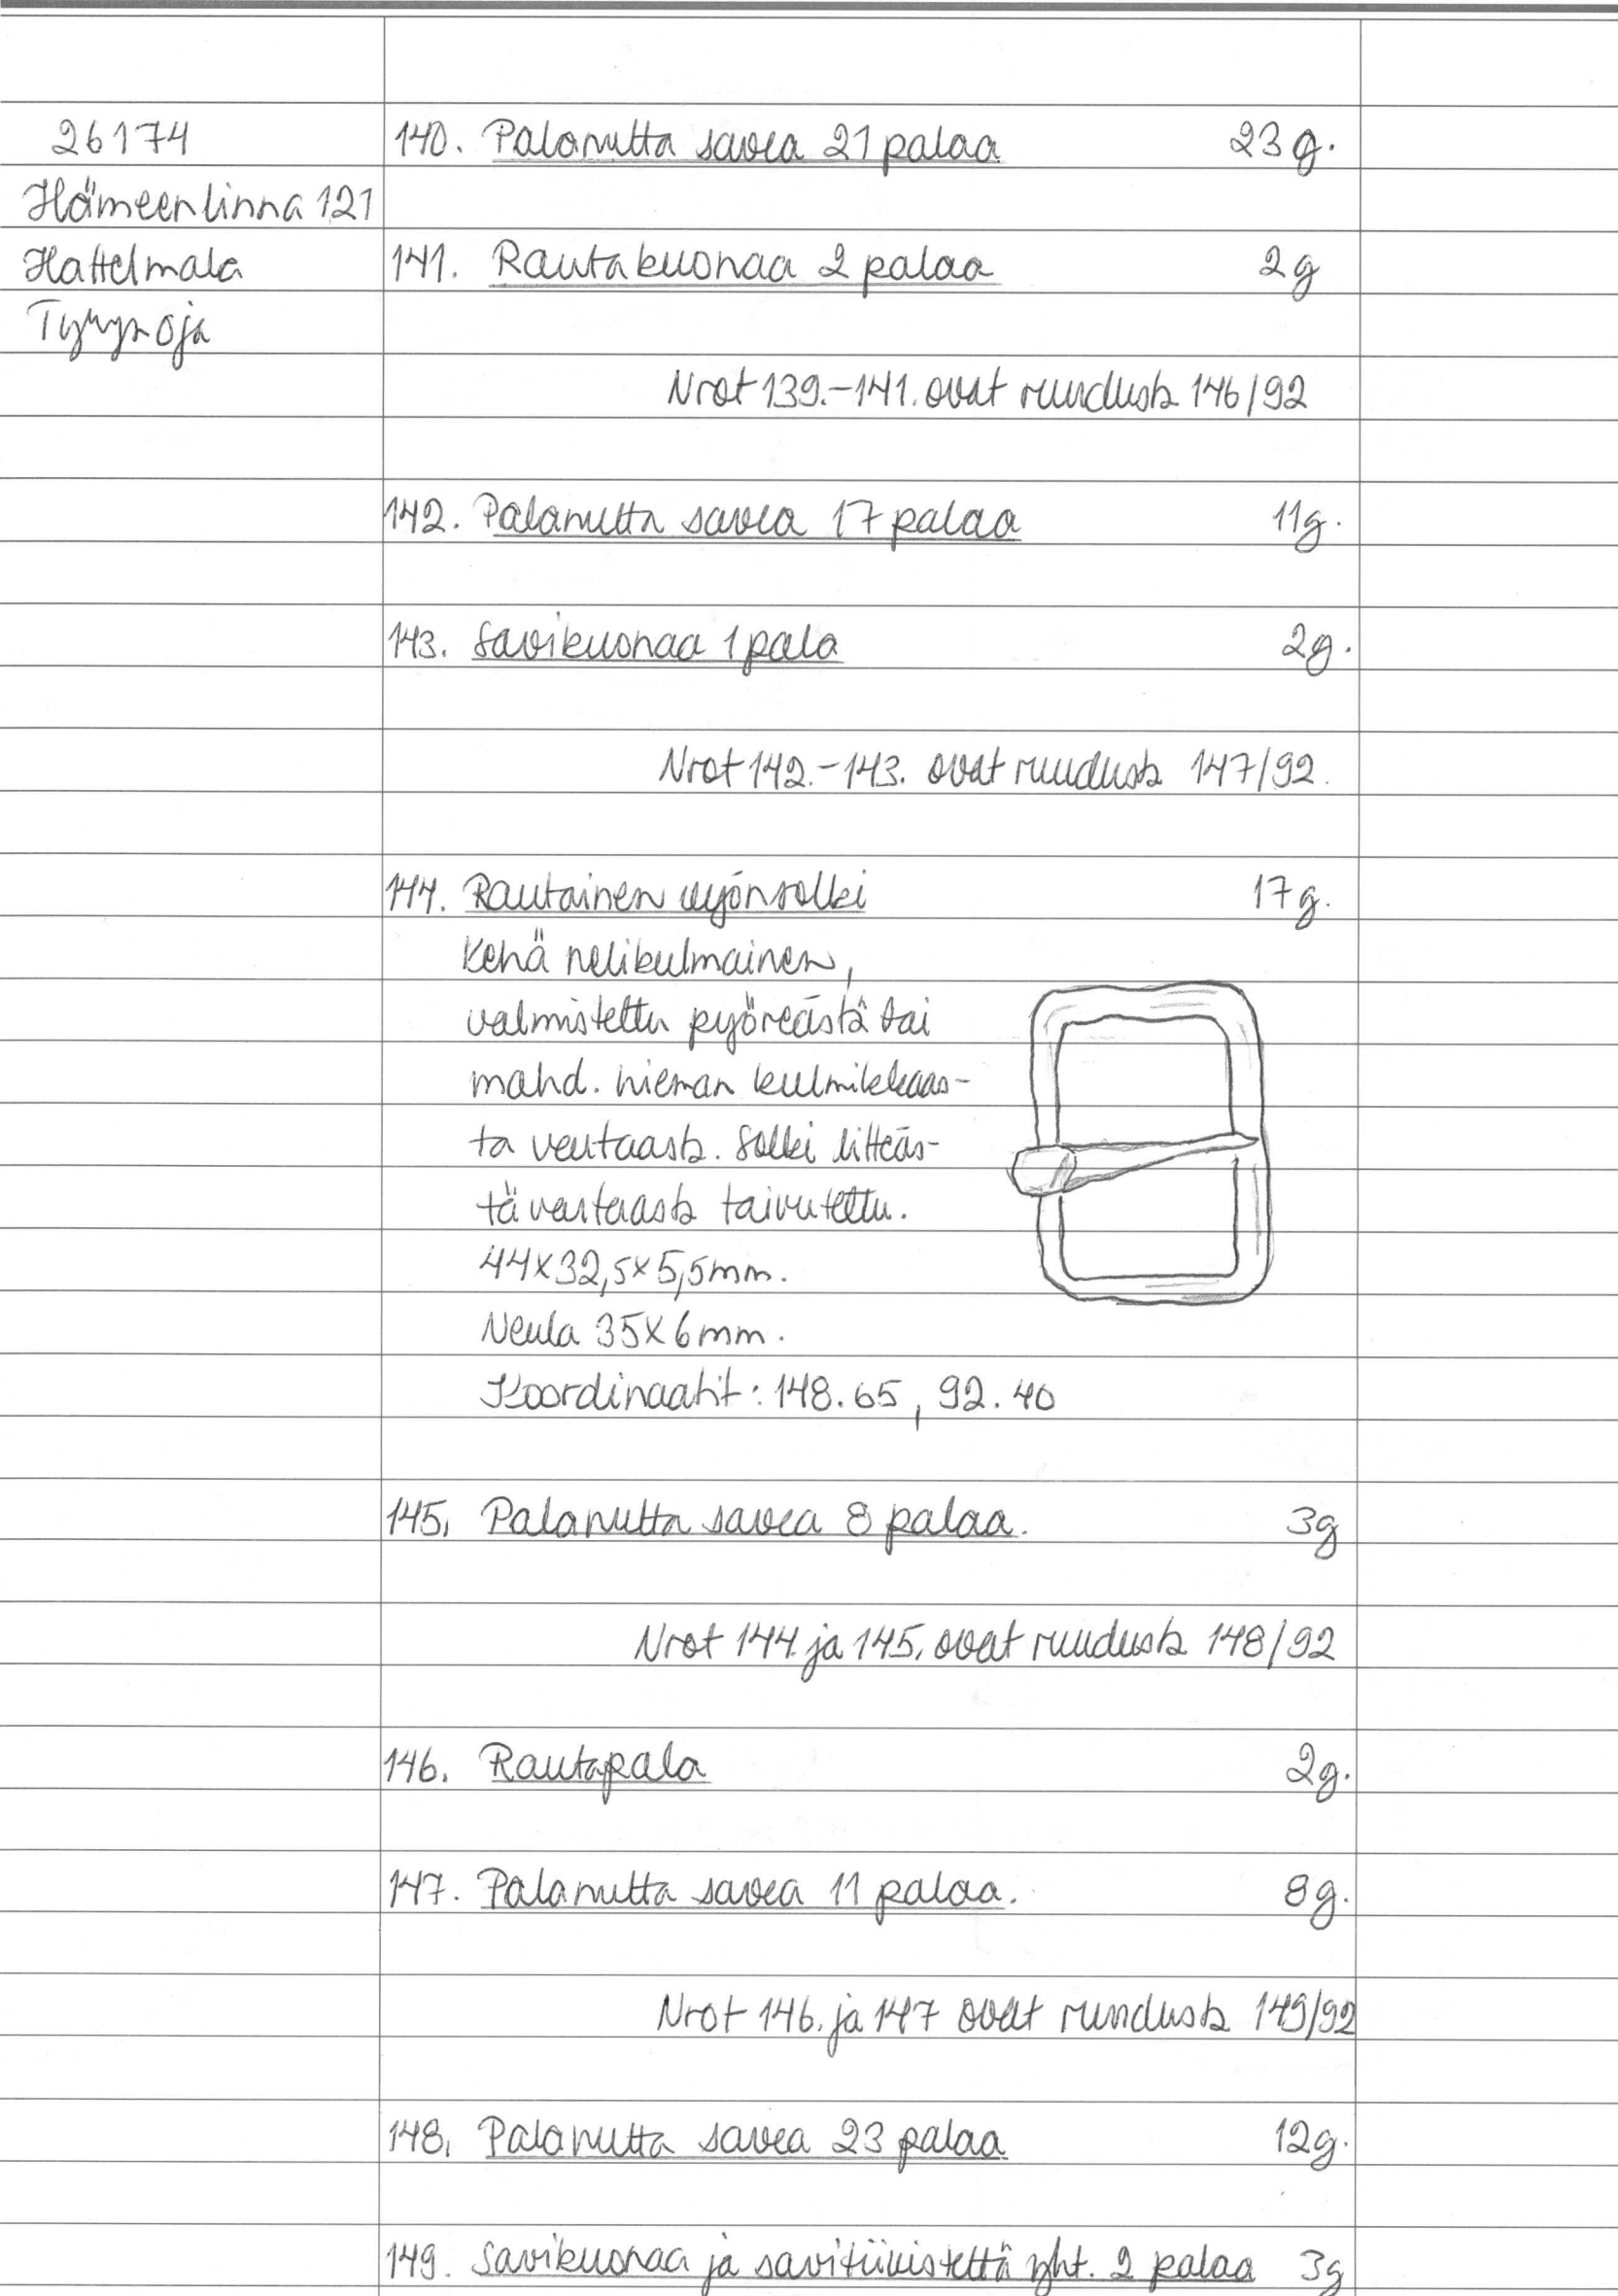 26174
Hämeenlinna 121
Hattelmala
Tyrynoja
140. Palanutta savea 21 palaa 23 g.
141. Rautakuonaa 2 palaa 2 g
Nrot 139.-141. ovat ruudusta 146/92
142. Palanutta savea 17 palaa 11g.
143. Savikuonaa 1 pala 2g.
Nrot 142.-143. ovat ruudusta 147/92.
144. Rautainen vyönsolki 17 g.
Kehä nelikulmainen,
valmistettu pyöreästä tai
mahd. hieman kulmikkaas-
ta vartaasta. Solki litteäs-
tä vartaasta taivutettu.
44x32,5x5,5mm.
Neula 35x6mm.
Koordinaatit: 148.65, 92.40
145. Palanutta savea 8 palaa. 3g
Nrot 144. ja 145. ovat ruudusta 148/92
146. Rautapala 2g.
147. Palanutta savea 11 palaa. 8g.
Nrot 146. ja 147 ovat ruudusta 149/92
148. Palanutta savea 23 palaa 12g.
149. Savikuonaa ja savitiivistettä yht. 2 palaa 3g